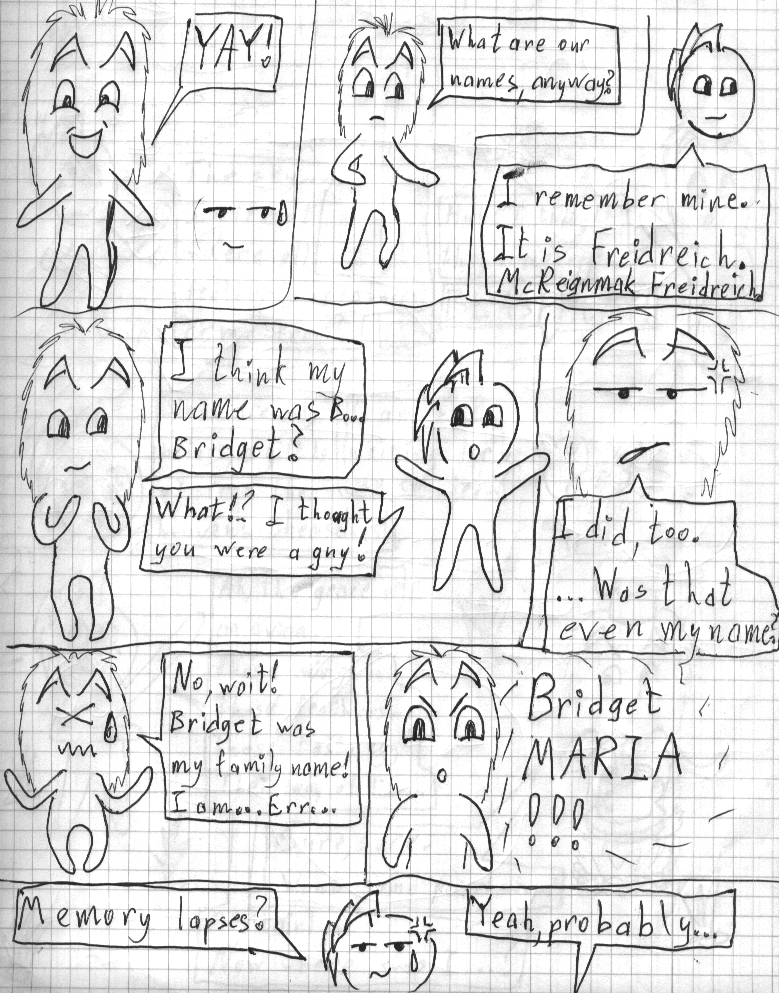 YAY!
What are our
names, anyway?
I remember mine.
It is Freidreich.
McReignmak Freidreich.
I think my
name was B...
Bridget?
What!? I thought
you were a guy!
I did, too.
... Was that
even my name?
No, wait!
Bridget was
my family name!
I am... Err...
Bridget
MARIA
!!!
Memory lapses?
Yeah, probably...